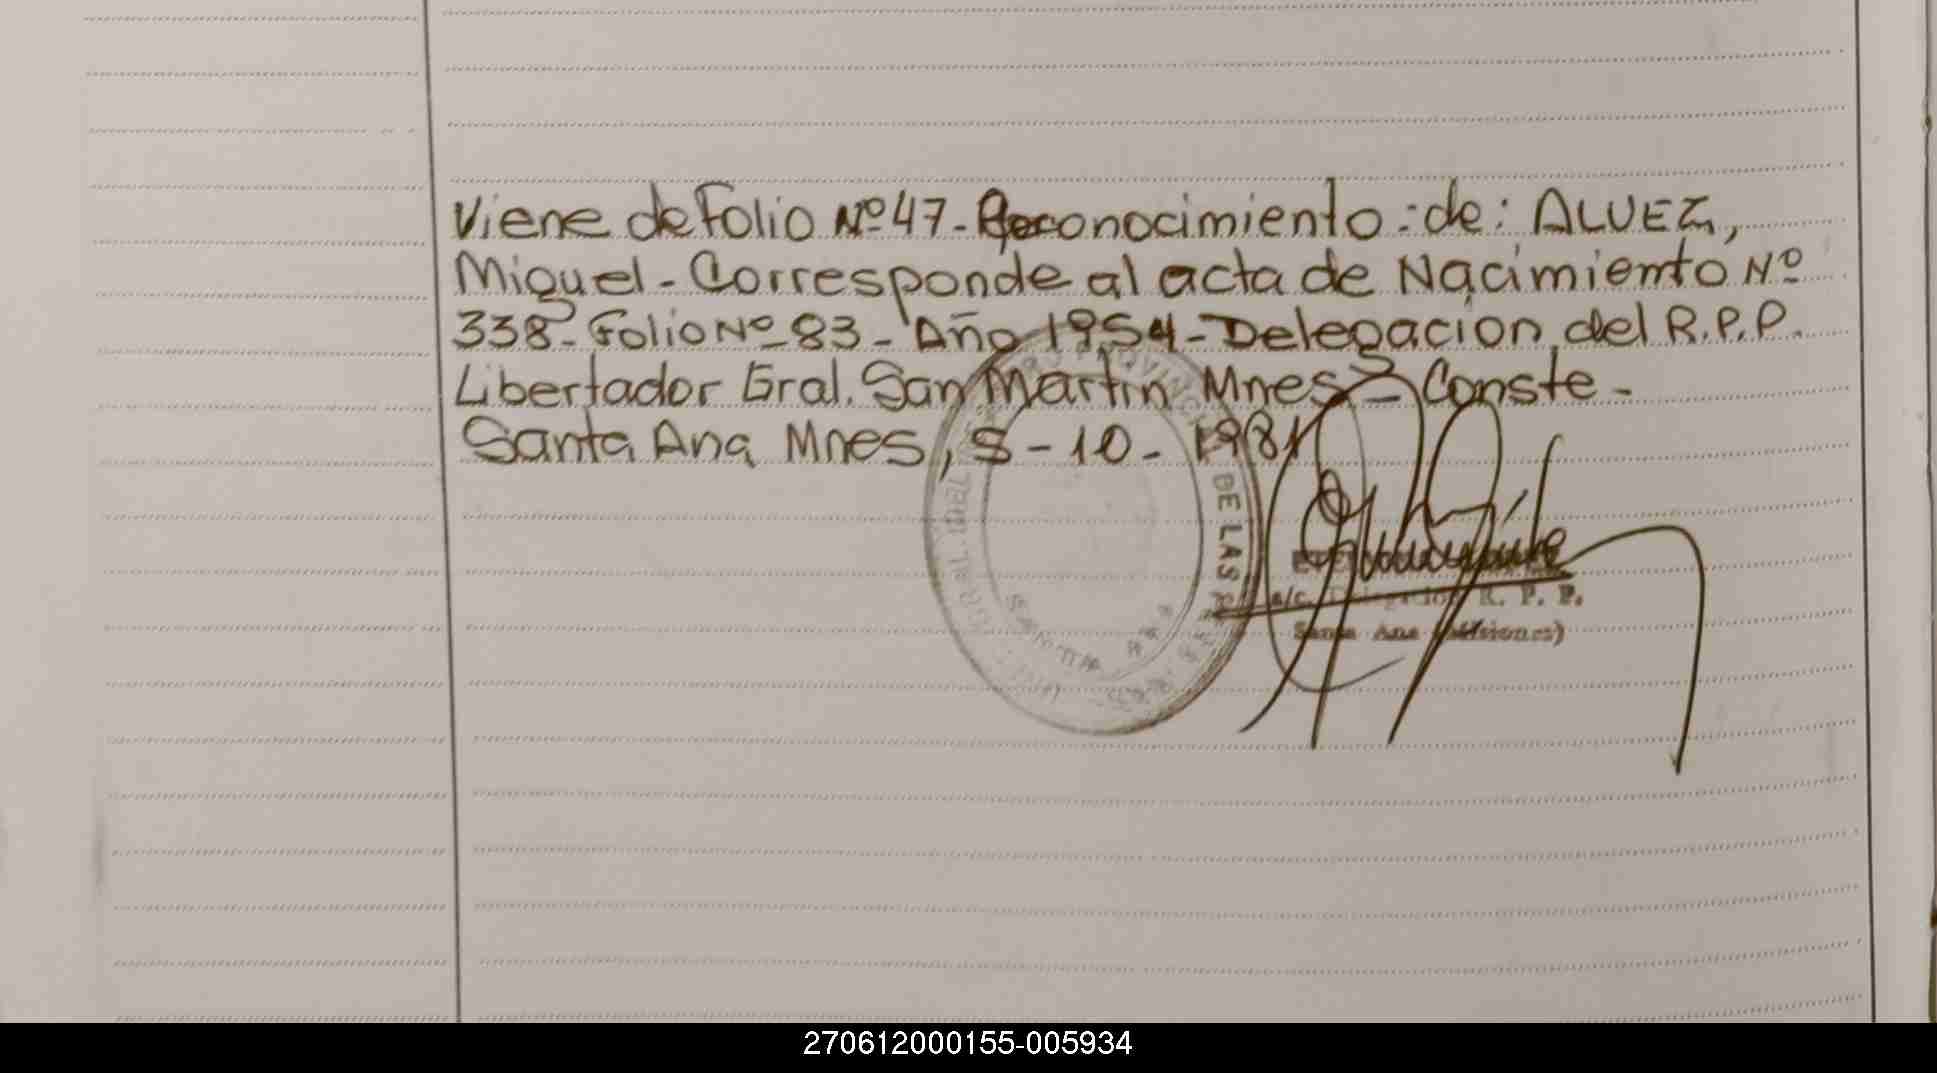 Viene de Folio Nº 47 - Reconocimiento : de : ALVEZ,
Miguel - Corresponde al acta de Nacimiento Nº
338 - Folio Nº 83 - Año 1954 - Delegacion del R.P.P.
Libertador Gral. San Martin Mnes - Conste -
Santa Ana Mnes, 5 - 10 - 1981
DE LAS
a/c. Delegacion R. P. P.
Santa Ana (Misiones)
270612000155-005934